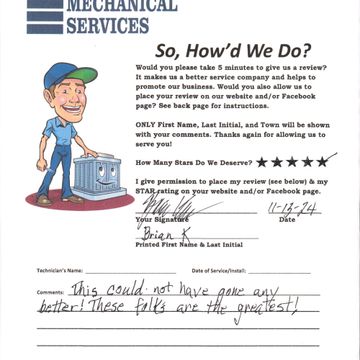 MECHANICAL
SERVICES
So, How'd We Do?
Would you please take 5 minutes to give us a review?
It makes us a better service company and helps to
promote our business. Would you also allow us to
place your review on our website and/or Facebook
page? See back page for instructions.
ONLY First Name, Last Initial, and Town will be
shown with your comments. Thanks again for allowing us to
serve you!
How Many Stars Do We Deserve? ★★★★★
I give permission to place my review (see below) & my
STAR rating on your website and/or Facebook page.
11-13-24
Your Signature Date
Brian K
Printed First Name & Last Initial
Technician's Name: Date of Service/Install:
Comments: This could not have gone any
better! These folks are the greatest!